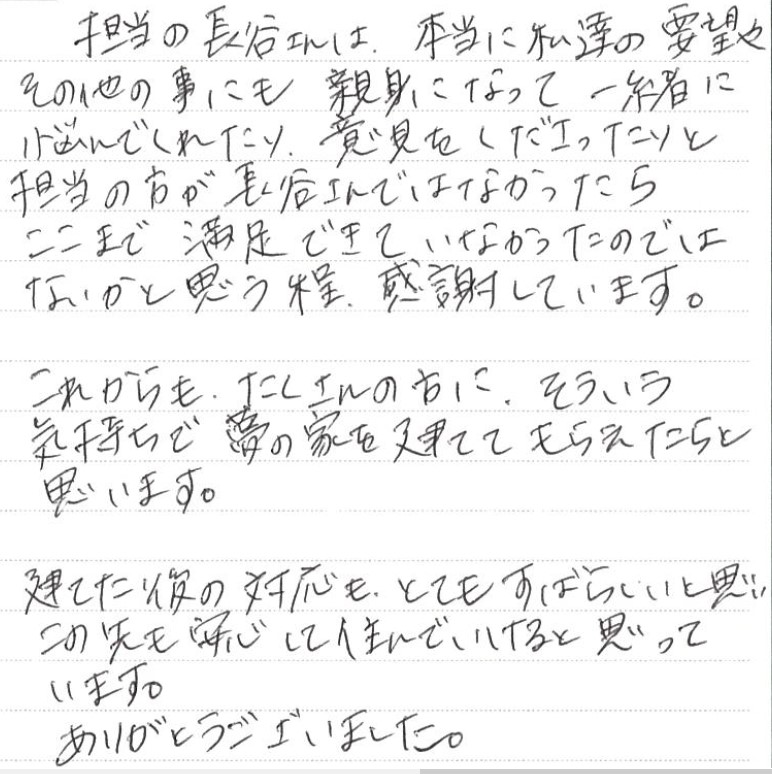 担当の長谷さんは、本当に私達の要望や
その他の事にも親身になって一緒に
悩んでくれたり、意見をくださったりと
担当の方が長谷さんではなかったら
ここまで満足できていなかったのでは
ないかと思う程、感謝しています。
これからも、たくさんの方に、そういう
気持ちで夢の家を建ててもらえたらと
思います。
建てた後の対応も、とてもすばらしいと思い
この先も安心して住んでいけると思って
います。
ありがとうございました。